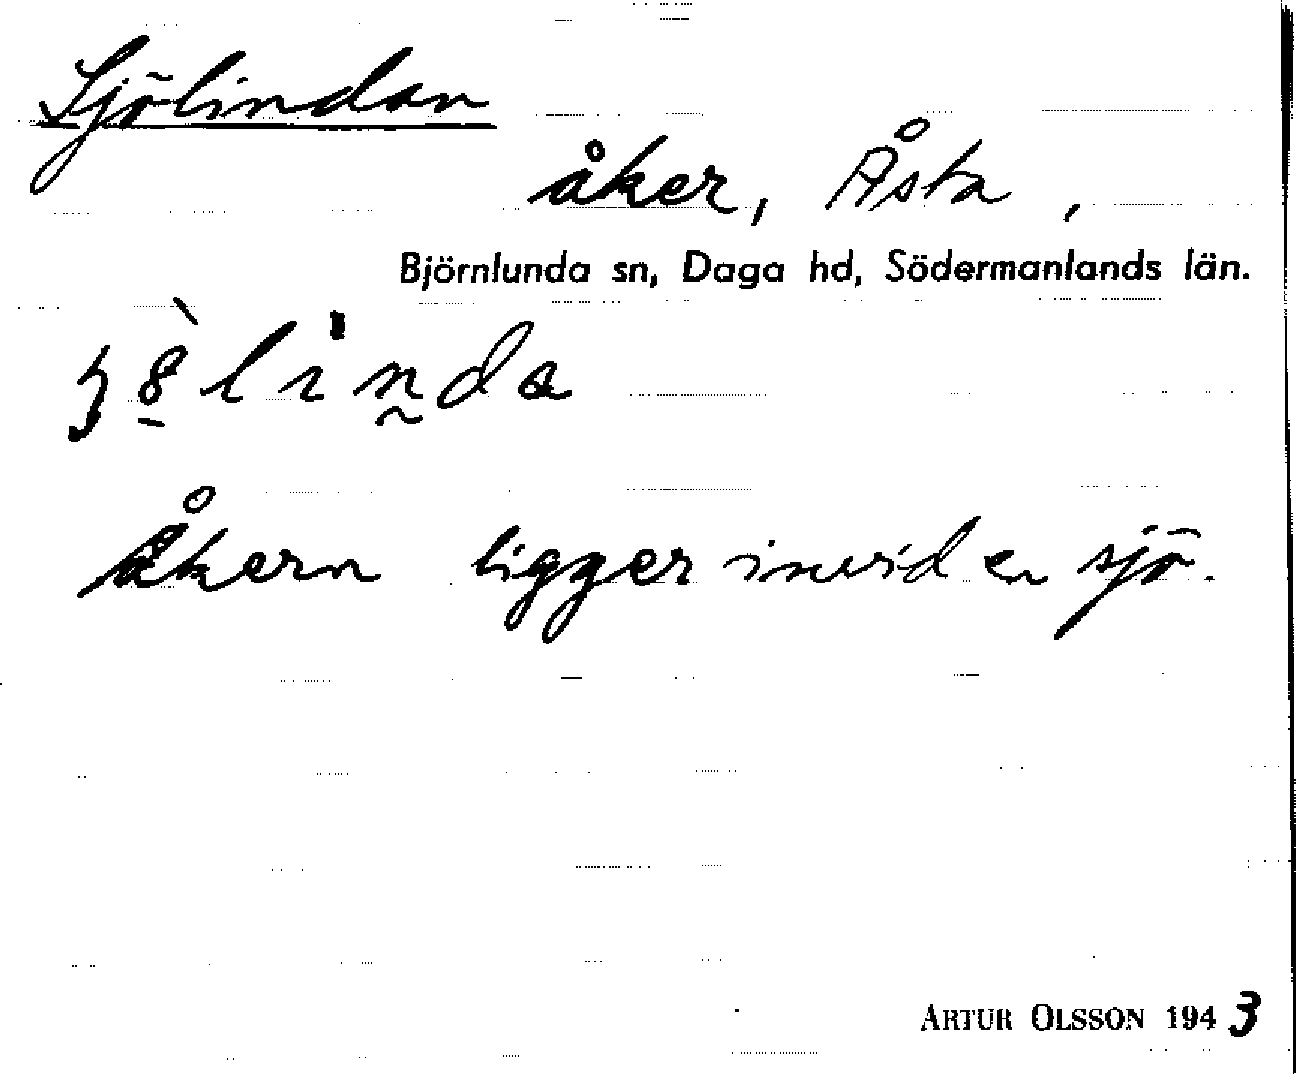 Sjölindan
åker, Åsta ,
Björnlunda sn, Daga hd, Södermanlands län.
Åkern ligger invid en sjö.
ARTUR OLSSON 1943